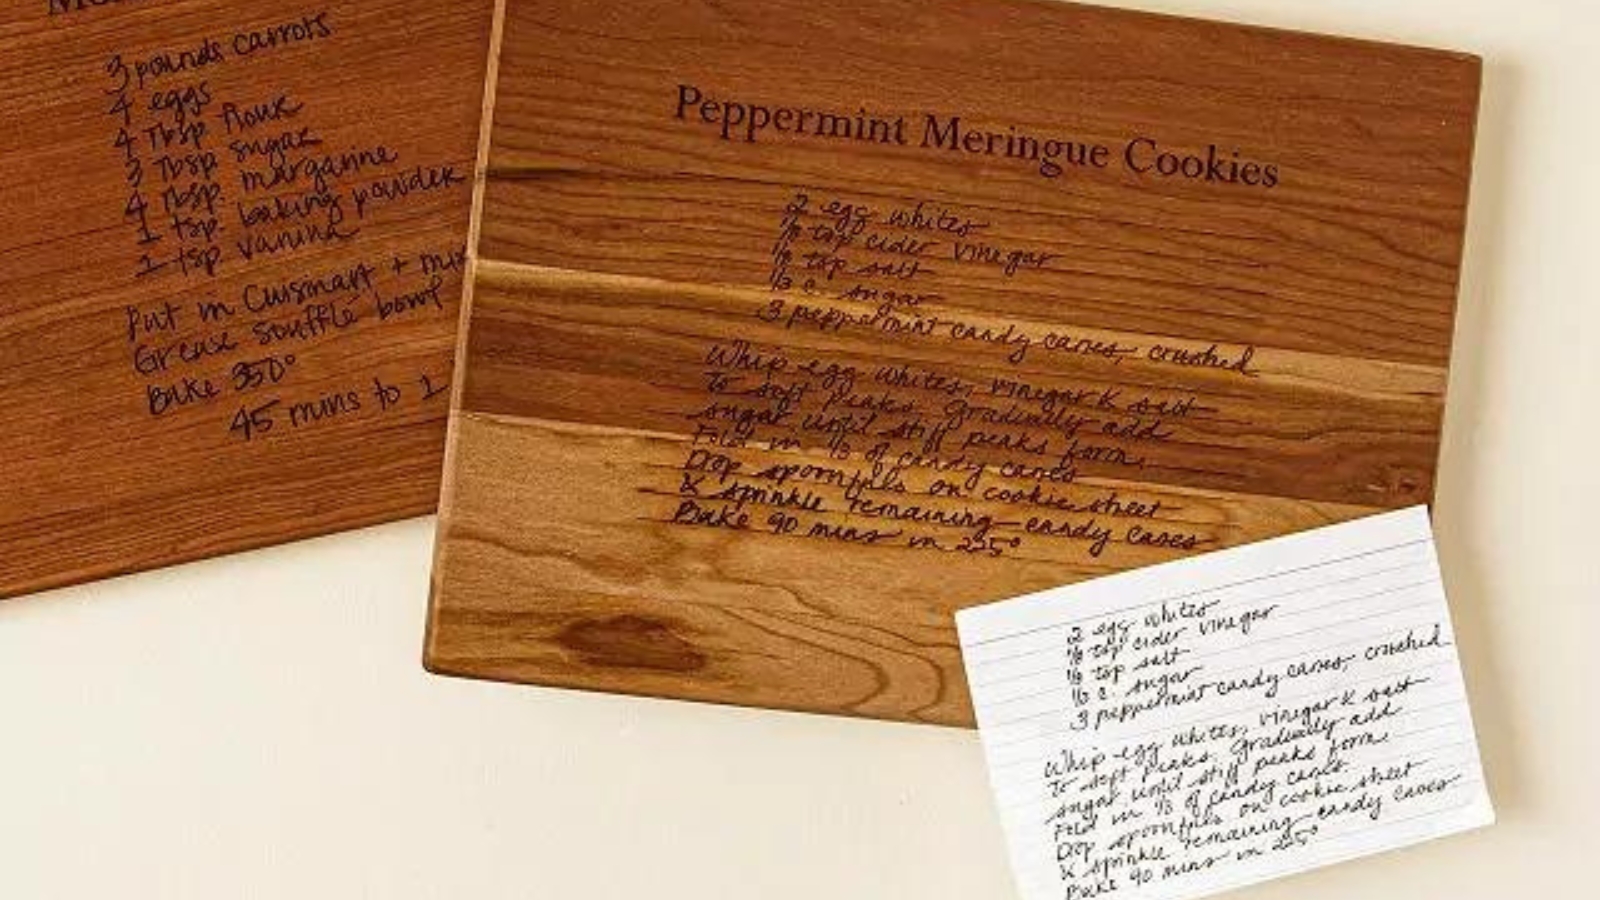 3 pounds carrots
4 eggs
4 Tbsp flour
3 Tbsp sugar
4 Tbsp. margarine
1 tsp. baking powder
1 tsp vanilla
Put in Cuisinart + mix
Grease soufflé bowl
Bake 350°
45 mins to 1
Peppermint Meringue Cookies
2 egg whites
1/8 tsp cider vinegar
1/8 tsp salt
1/3 c. sugar
3 peppermint candy canes, crushed
Whip egg whites, vinegar & salt
to soft peaks. Gradually add
sugar until stiff peaks form.
Fold in 1/3 of candy canes
Drop spoonfuls on cookie street
& sprinkle remaining candy canes
Bake 90 mins in 225°
2 egg whites
1/8 tsp cider vinegar
1/8 tsp salt
c. sugar
3 peppermint candy canes, crushed
Whip egg whites, vinegar & salt
to soft peaks. Gradually add
sugar until stiff peaks form.
Fold in 1/3 of candy canes.
Drop spoonfuls on cookie street
& sprinkle remaining candy canes
Bake 90 mins in 225°